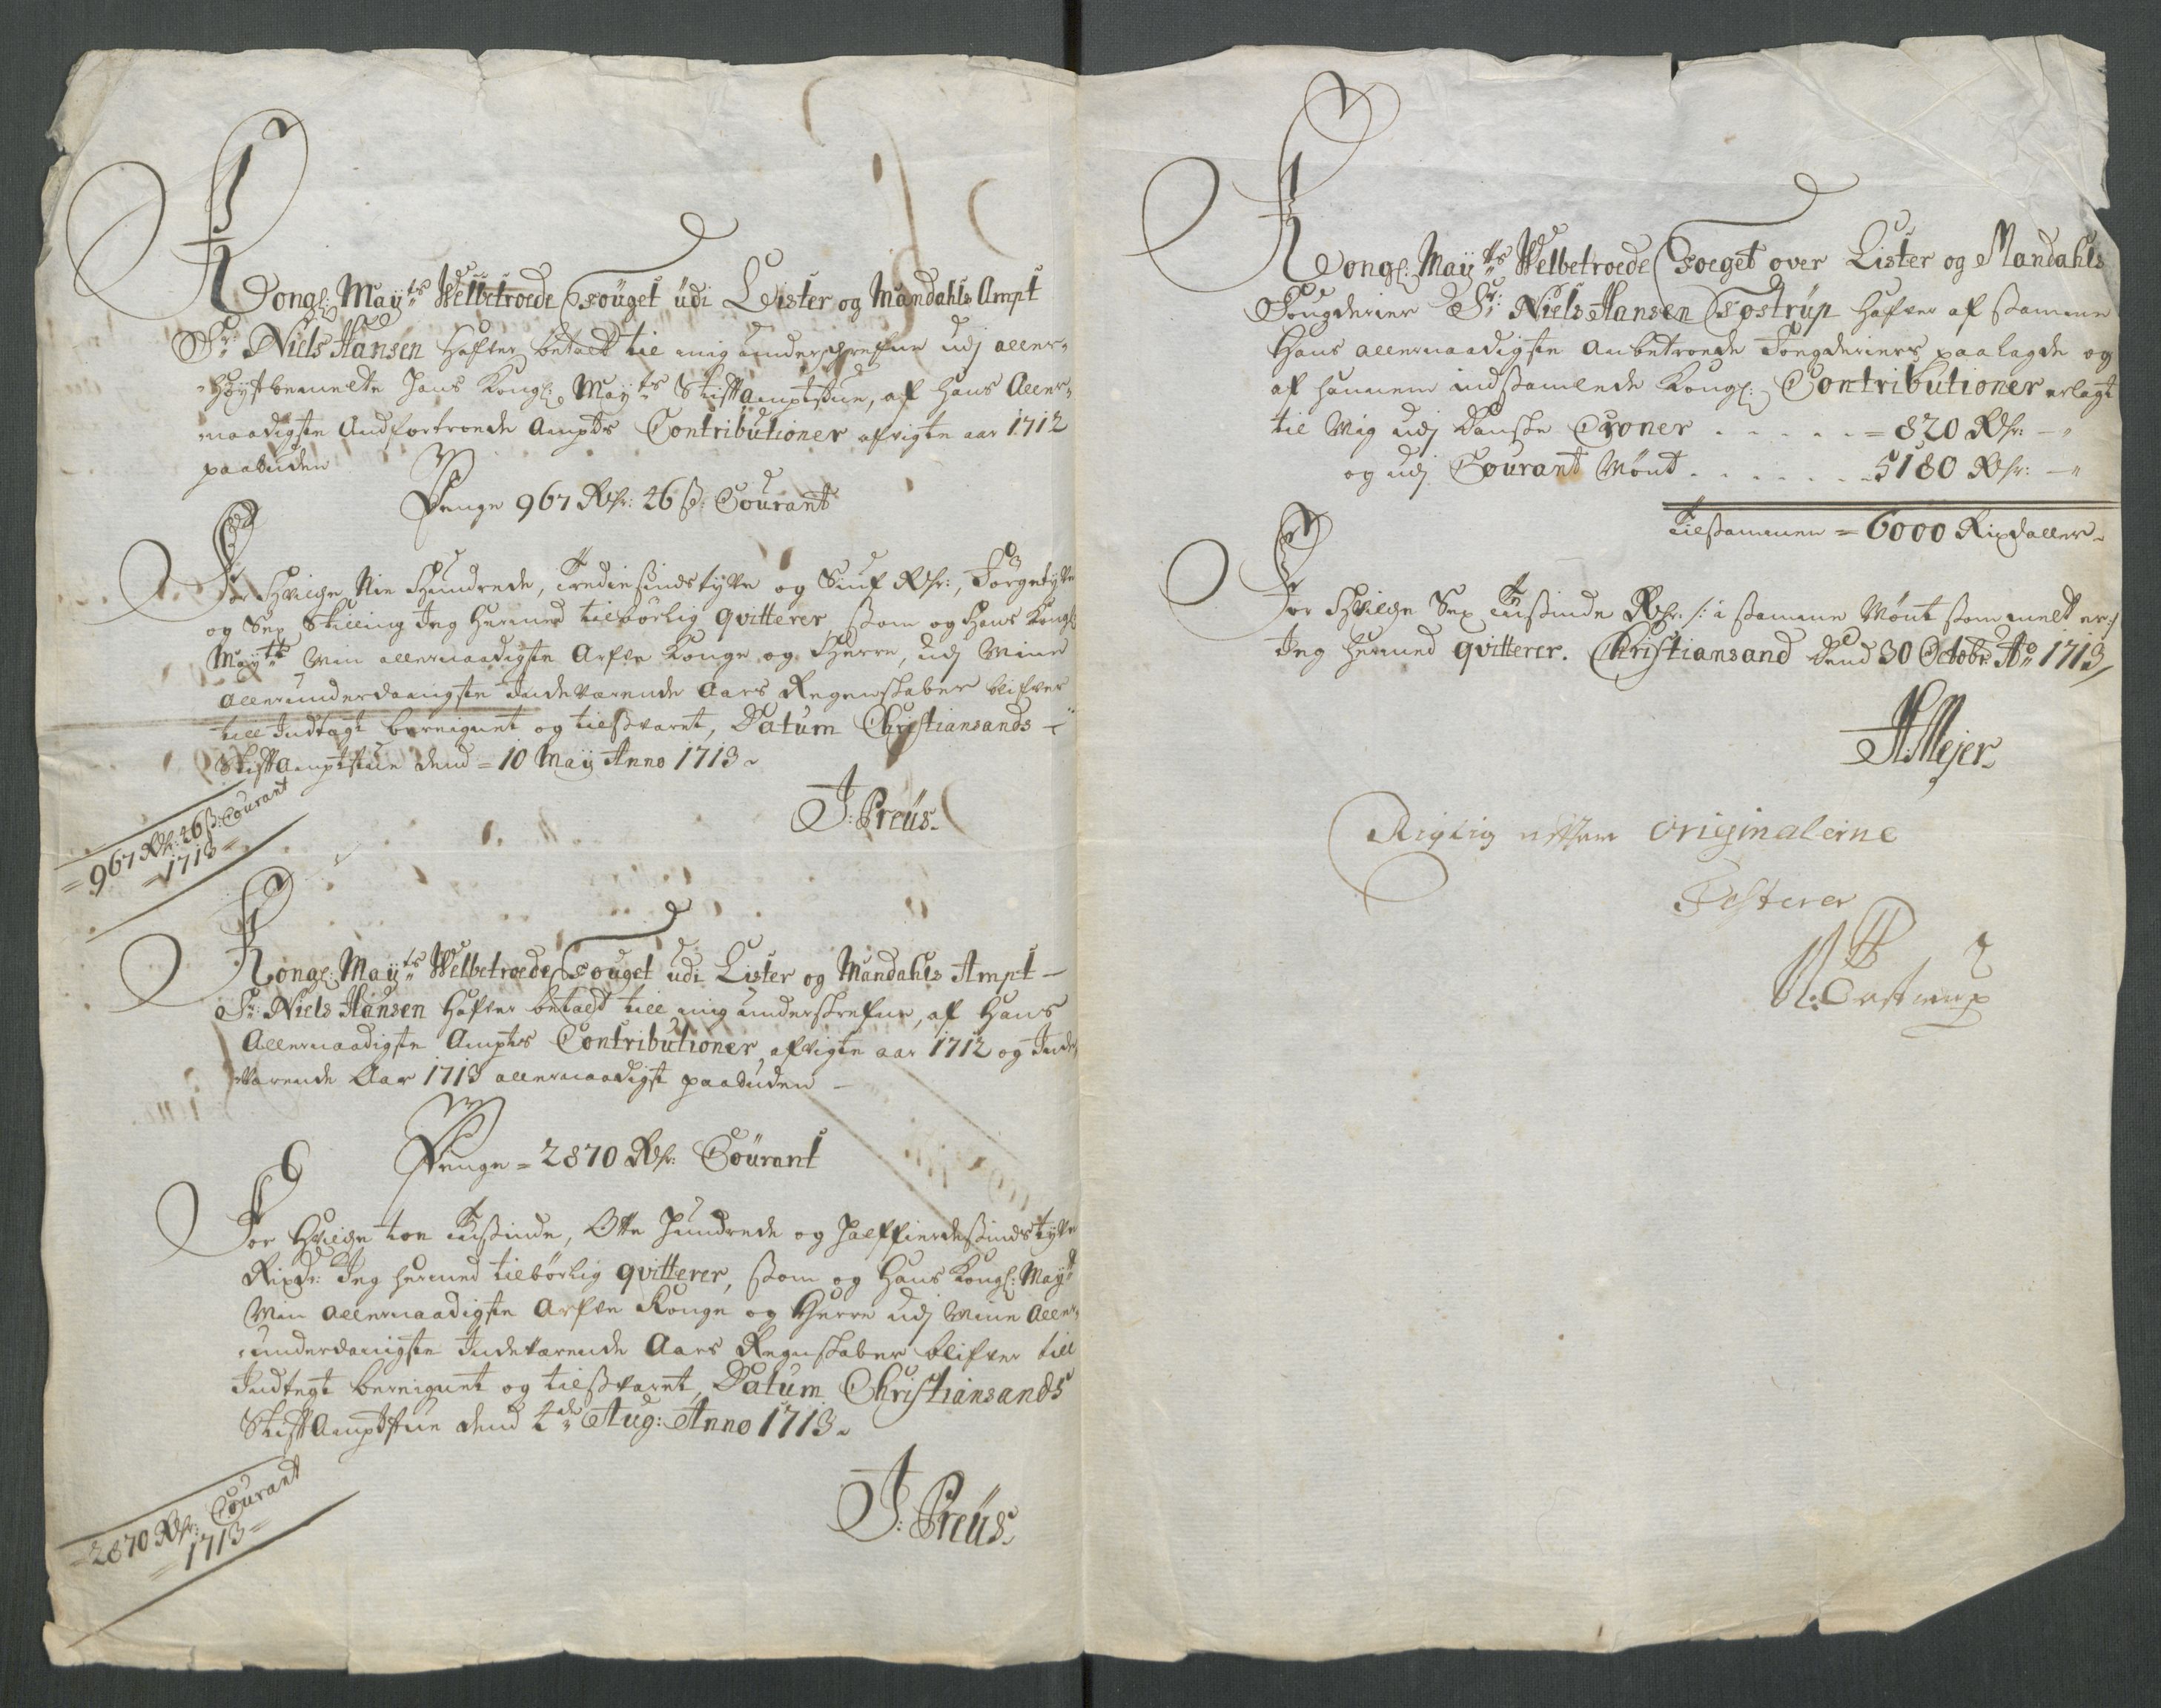 Kongl: Maÿts Welbetroede Fouget udi Lister og Mandahls Ampt
Sr: Niels Hansen Hafver betalt til mig underschrefne udj aller-
Høystbemelte Hans Kongl: Mayts Stifftamptstue, af Hans Aller-
naadigste Anbetroede Ampts Contributioner afvigte aar 1712
paabuden
Penge 967 Rdr: 46 ß: Courant
For Hvilche Nie Hundrede, Trediesindstyfve og Siuf Rdr:, Førgetyfve
og Sex Skilling Jeg Hermed tilbørlig qvitterer, ssom og Hans Kongl:
Maytt Min allernaadigste Arfve Konge og Herre, udj Mine
allerunderdanigste Indeværende Aars Regenskaber blifver
till Indtægt bereignet og tilssvaret, Datum Christiansands
Stifftamptstue dend 10 Maÿ Anno 1713
J: Preüs
967 Rdr: 46 ß: Courant
1713
Kongl: Maÿts Welbetroede Fouget udi Lister og Mandahls Ampt
Sr: Niels Hansen Hafver betald till mig underskrefne, af Hans
Allernaadigste Ampts Contributioner, afvigte aar 1712 og Inde-
værende Aar 1713 allernaadigst paabuden
Penge 2870 Rdr: Courant
For Hvilche toe Tussinde, Otte Hundrede og Halffierdessindstyfve
Rixdr: Jeg hermed tilbørlig qvitterer, ssom og Hans Kongl: Mayt
Min Allernaadigste Arfve Konge og Herre udj Mine Aller-
underdanigste Indeværende Aars Regnskaber blifver till
Indtegt bereignet og tilssvaret, Datum Christiansands
StifftAmptstue dend 4de Aug: Anno 1713
J: Preüs
2870 Rdr: Courant
1713
Kongl: Maÿtts Welbetroede Foeget over Lister og Mandahls
Fougderier Sr: Niels Hansen Tostrup Hafver af ssamme
Hans allernaadigste Anbetroede Fougderiers paalagde og
af hannem indssamlede Kongl: Contributioner erlagt
til Mig udj Danske Croner . . . . . = 820 Rdr: — "
og udj Courant Mønt . . . . . . . 5180 Rdr: — "
Tilssammen = 6000 Rixdaller
For Hvilche Sex Tussinde Rdr: /: i ssamme Mønt ssom melt er :/
Jeg hermed qvitterer. Christiansand dend 30 Octobr: Ao 1713
H. Mejer
Rigtig efter originalerne
Testerer
N: Tostrup